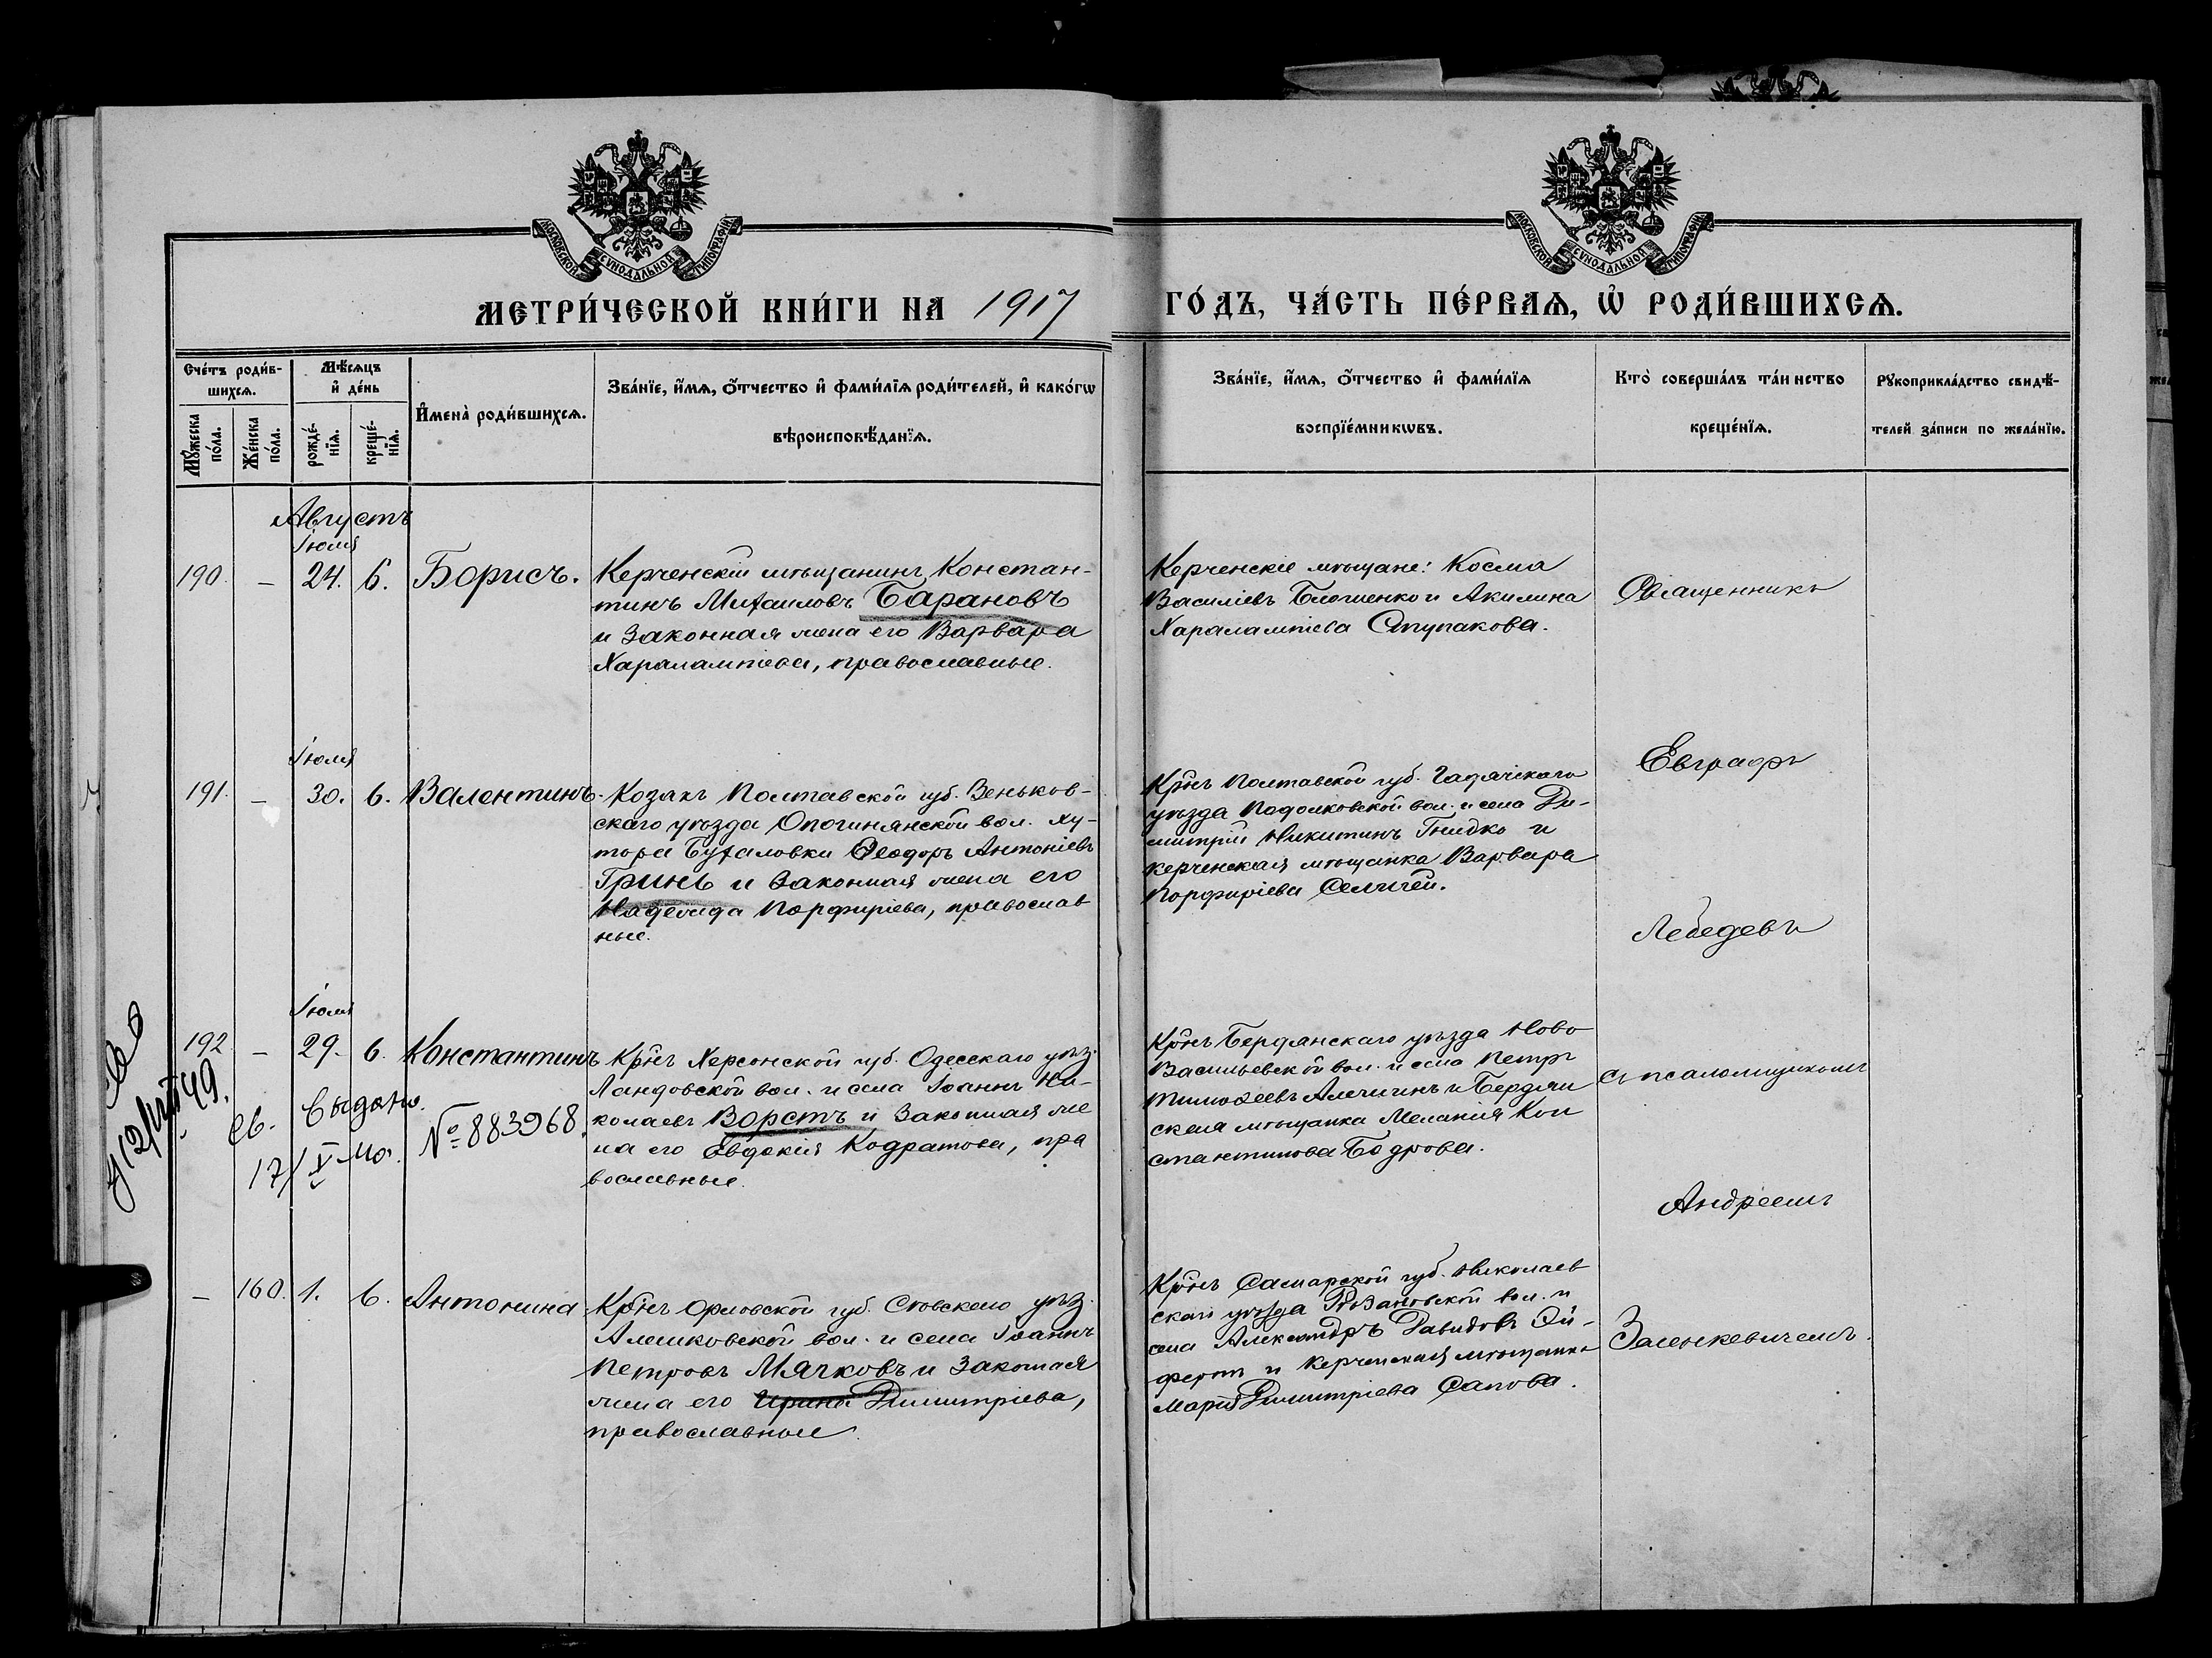 МОСКОВСКОЙ СѴНОДАЛЬНОЙ ТИПОГРАФІИ
МОСКОВСКОЙ СѴНОДАЛЬНОЙ ТИПОГРАФІИ
МЕТРИ́ЧЕСКОЙ КНИ́ГИ НА 1917 ГО́ДЪ, ЧА́СТЬ ПЕ́РВАѦ, Ѡ҆ РОДИ́ВШИХСѦ.
Сче́тъ роди́в-
шихсѧ.
Мꙋ́жеска по́ла.
Же́нска по́ла.
Мѣ́сѧцъ
и҆ де́нь
рожде́-
нїѧ.
креще́-
нїѧ.
И҆мена̀ роди́вшихсѧ.
Зва́нїе, и҆́мѧ, ѻ҆́тчество и҆ фами́лїѧ роди́телей, и҆ како́гѡ
вѣроисповѣ́данїѧ.
Зва́нїе, и҆́мѧ, ѻ҆́тчество и҆ фами́лїѧ
воспрїе́мникѡвъ.
Кто̀ соверша́лъ та́инство
креще́нїѧ.
Рꙋкоприкла́дство свидѣ́-
телей за́писи по жела́нїю.
Августъ
Іюля
190. — 24. 6. Борисъ.
Керченскій мѣщанинъ, Констан-
тинъ Михаиловъ Барановъ
и законная жена его Варвара
Харалампіева, православные.
Керченскіе мѣщане: Косма
Василіевъ и Акилина
Харалампіева Ступакова.
Священникъ
Іюля
191. — 30. 6. Валентинъ.
Козакъ Полтавской губ. Зеньков-
скаго уѣзда Опошнянской вол. ху-
тора Бухаловки Ѳеодоръ Антоніевъ
Гринь и законная жена его
Надежда Порфиріева, православ
ные.
Кр̃нъ Полтавской губ. Гадячскаго
уѣзда вол. и села Ди-
митрій Никитинъ Гнидко и
керченская мѣщанка Варвара
Порфиріева
Евграфъ
Лебедевъ
Іюля
192 — 29. 6. Константинъ
Кр̃нъ Херсонской губ. Одесскаго уѣз.
Ландовской вол. и села Іоаннъ Ни-
колаевъ Ворстъ и законная же
на его Евдокія Кодратова, пра
вославные.
Кр̃нъ Бердянскаго уѣзда Ново
Васильевской вол. и села Петръ
Тимоѳеевъ и Бердян
ская мѣщанка Меланія Кон
стантинова Бодрова.
съ псаломщикомъ
Андреемъ
св. выдано.
17/V 40. № 883968.
12/VIII 49.
— 160. 1. 6. Антонина
Кр̃нъ Орловской губ. Сѣвскаго уѣз.
Алешковской вол. и села Іоаннъ
Петровъ Мячковъ и законная
жена его Ирина Димитріева,
православные
Кр̃нъ Самарской губ. Николаев
скаго уѣзда вол. и
села Александръ Давидовъ Эй-
фертъ и керченская мѣщанка
Марія Димитріева Сапова.
Заленкевичемъ.